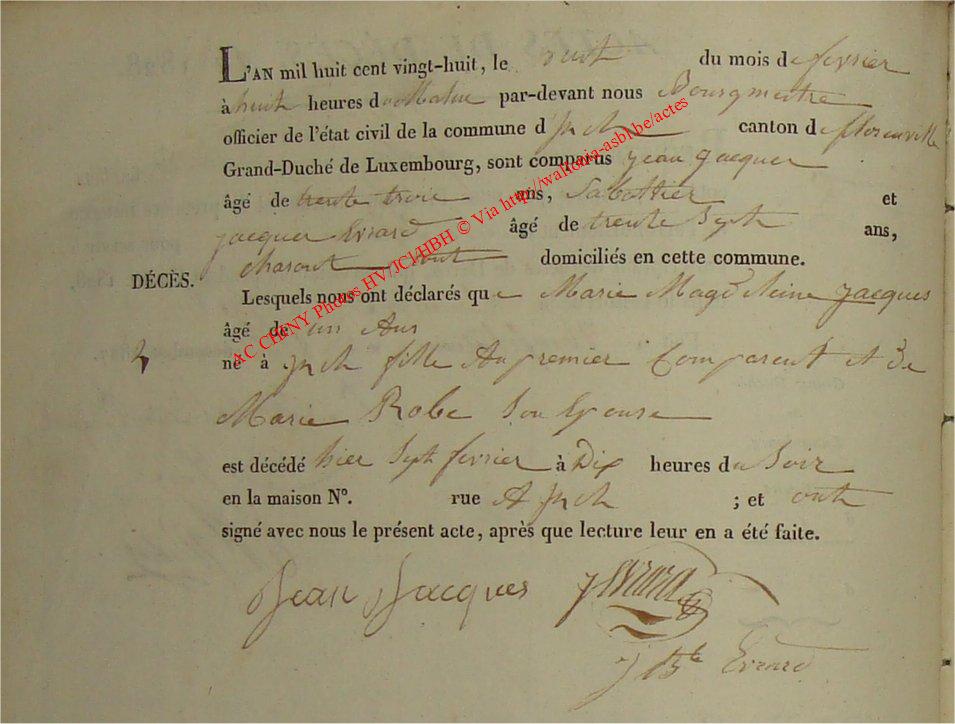 L'AN mil huit cent vingt-huit, le huit du mois de fevrier
à huit heures du Matin par-devant nous Bourgmestre
officier de l'état civil de la commune d'Jzel canton de florenville
Grand-Duché de Luxembourg, sont comparus jean jacques
âgé de trente trois ans, Sabottier et
jacques Evrard âgé de trente Sept ans,
DÉCÈS. charont domiciliés en cette commune.
Lesquels nous ont déclarés que Marie Magdeleine jacques
âgé de un Ans
né à fille du premier Comparent et de
Marie Robe Son Epouse
est décédé hier Sept fevrier à Dix heures du Soir
en la maison N°. rue A ; et ont
signé avec nous le présent acte, après que lecture leur en a été faite.
Jean Jacques J Evrard
J Bte Evrard
AC CHINY Photos HV/JC1/HBH © Via http://wallonia-asbl.be/actes